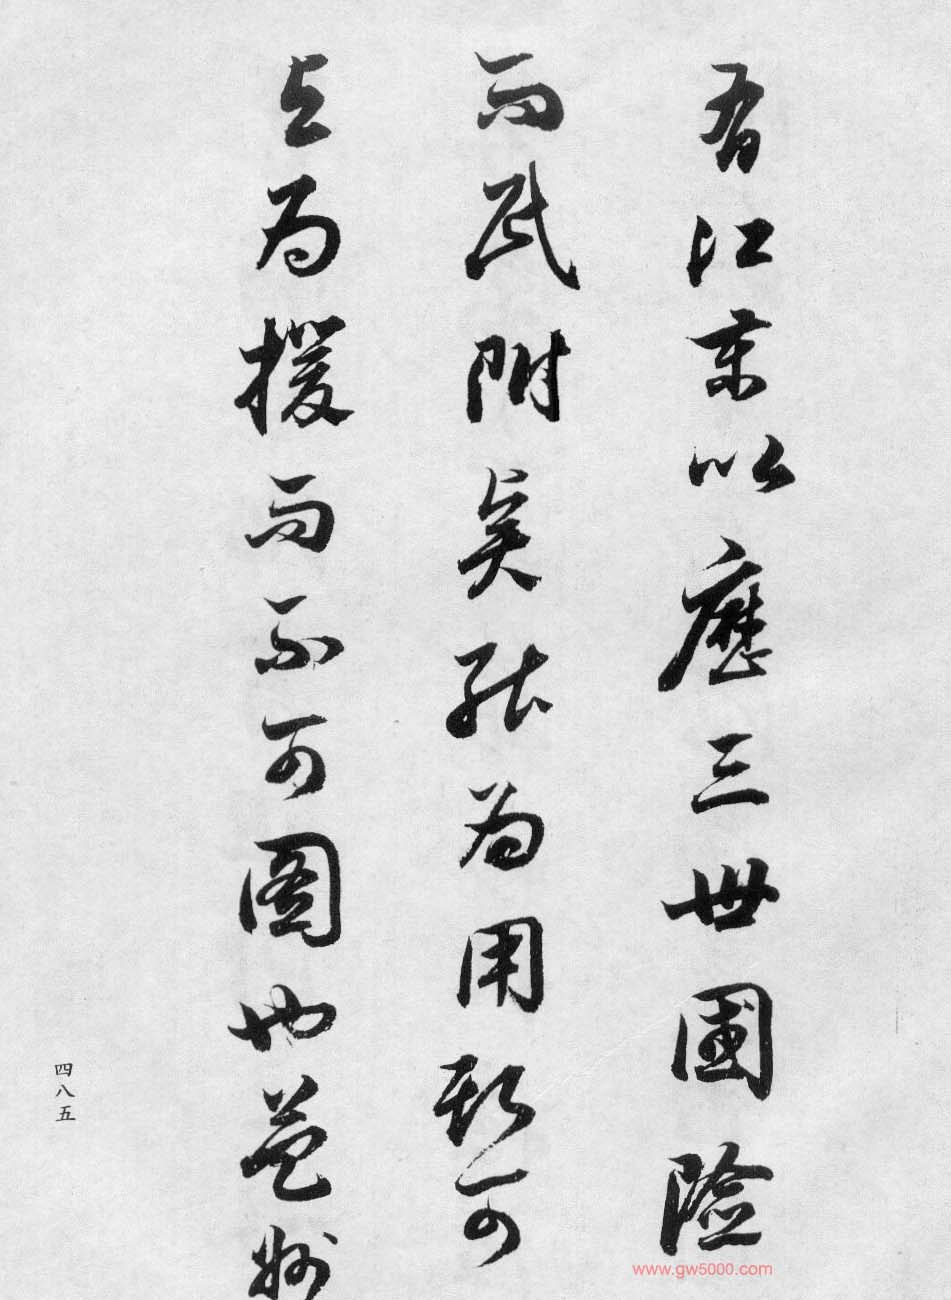 有江東以歷三世國險
而民附賢能為用斯可
与為援而不可圖也益州
四八五
www.gw5000.com